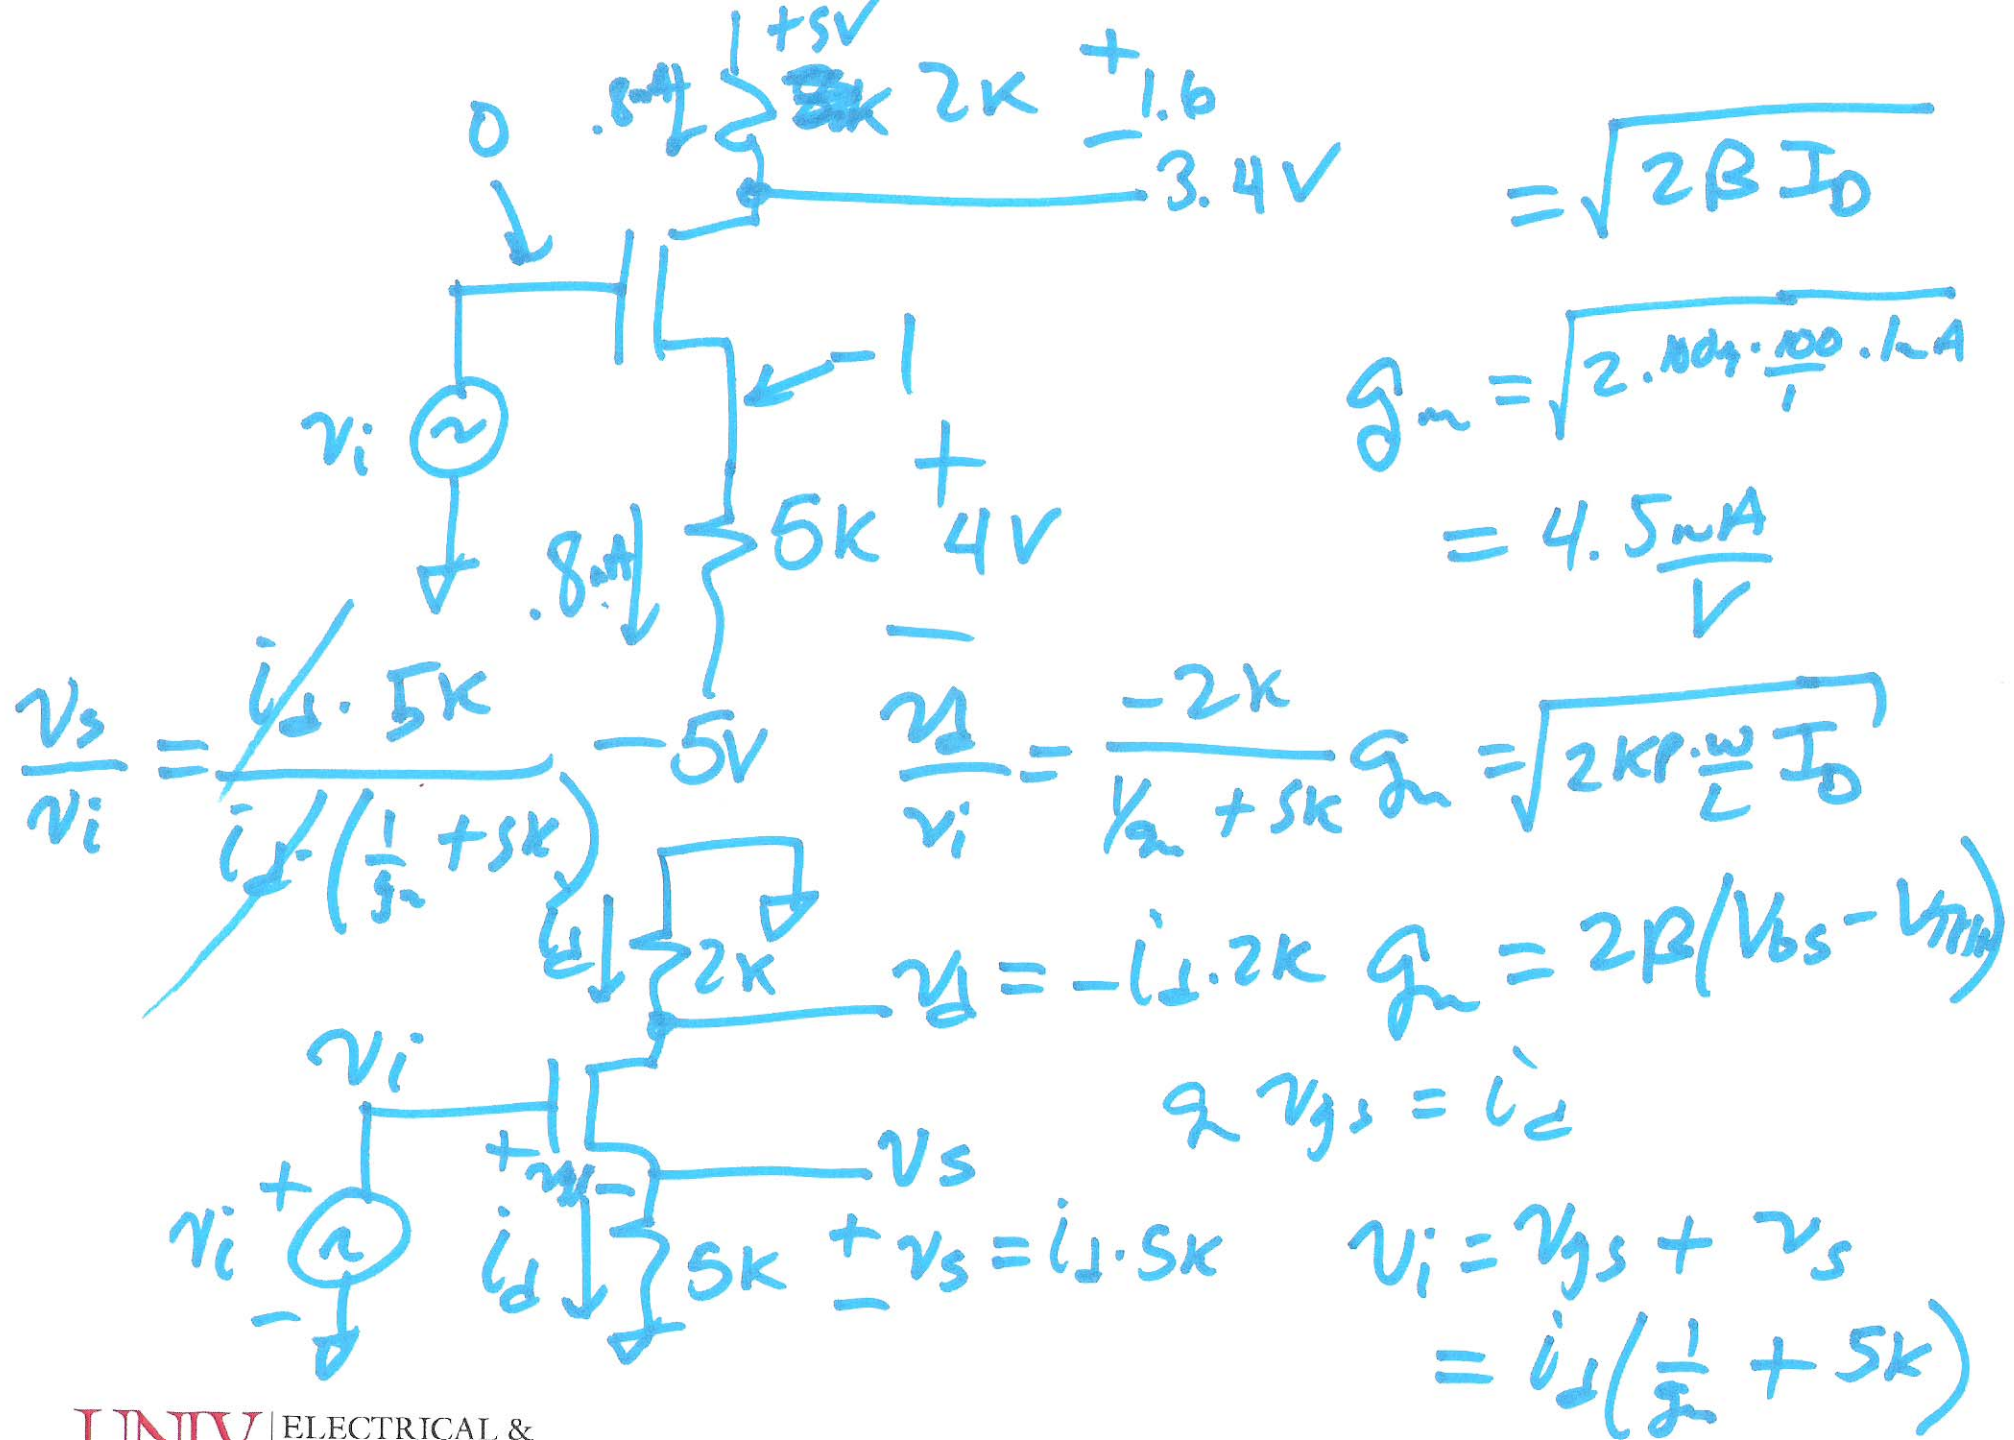 +5V
0
.8mA
2K
+
1.6
−
3.4V
= √(2βI_D)
−1
v_i
g_m = √(2 · 100μ · 100/1 · 1mA)
= 4.5 mA/V
+
4V
−
5K
.8mA
−5V
v_s/v_i = i_d · 5K / i_d · (1/g_m + 5K)
v_d/v_i = −2K / (1/g_m + 5K)
g_m = √(2KP · W/L I_D)
i_d
2K
v_d = −i_d · 2K
g_m = 2β(V_GS − V_THN)
v_i
g_m v_gs = i_d
+ v_gs −
v_s
+
v_i
−
i_d
5K
+
−
v_s = i_d · 5K
v_i = v_gs + v_s
= i_d(1/g_m + 5K)
UNLV | ELECTRICAL &